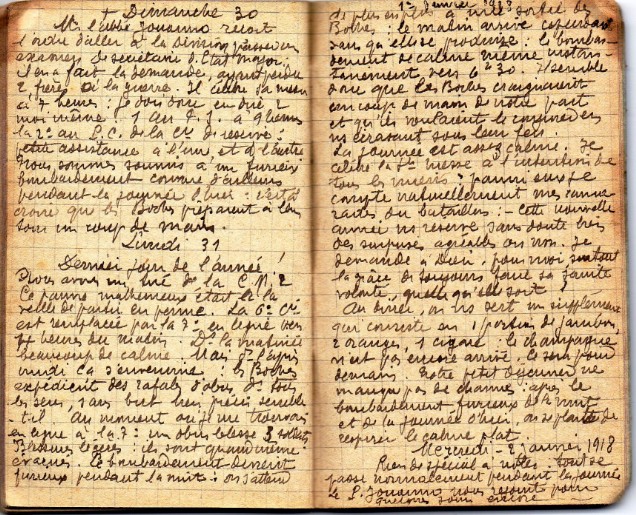 + Dimanche 30
M. l'abbé Jouanno reçoit
l'ordre d'aller à la Division passer un
examen de secrétaire d'Etat major.
Il en a fait la demande, ayant perdu
2 frères à la guerre. Il célèbre sa messe
à 7 heures : je dois donc en dire 2
moi même : 1 au
la 2e au P.C. de la Cie de réserve :
petite assistance à l'une et à l'autre
Nous sommes soumis à un furieux
bombardement comme d'ailleurs
pendant la journée d'hier : c'est à
croire que les Boches préparent à leur
tour un coup de main.
Lundi 31
Dernier jour de l'année !
Nous avons un tué de la C.M. 2
Ce pauvre malheureux était là la
veille de partir en perme. La 6e Cie
est remplacée par la 7e en ligne vers
heures du matin. Ds la matinée
beaucoup de calme. Mais ds l'après
midi ça s'envenime : les Boches
expédient des rafales d'obus ds tous
les sens, sans but bien précis semble
-t-il. Au moment où je me trouvais
en ligne à la 7e un obus blesse 3 soldats
Blessures légères : ils sont quand même
évacués. Le bombardement devient
furieux pendant la nuit : on s'attend
1er Janvier 1918
de plus en plus à une sortie des
Boches : le matin arrive cependant
sans qu'elle se produise : le bombar-
dement se calme même instan-
tanément vers 6h30. Il semble
donc que les Boches craignaient
un coup de main de notre part
et qu'ils voulaient le empêcher en
ns écrasant sous leur feu.
La journée est assez calme. Je
célèbre la Ste messe à l'intention de
tous les miens : parmi eux je
compte naturellement mes cama-
rades du bataillon : - Cette nouvelle
année ns réserve sans doute bien
des surprises agréables ou non. Je
demande à Dieu pour moi surtout
la grâce de toujours faire sa sainte
volonté, quelle qu'elle soit !
Au dîner, on ns sert un supplément
qui consiste en 1 portion de jambon,
2 oranges, 1 cigare : le champagne
n'est pas encore arrivé : ce sera pour
demain. Notre petit déjeuner ne
manque pas de charme : après le
bombardement furieux de la nuit
et de la journée d'hier, on se plaît de
respirer le calme plat.
Mercredi - 2 janvier 1918
Rien de spécial à noter. Tout se
passe normalement pendant la journée
Le P. Jouanno nous revient pour
quelques jours encore